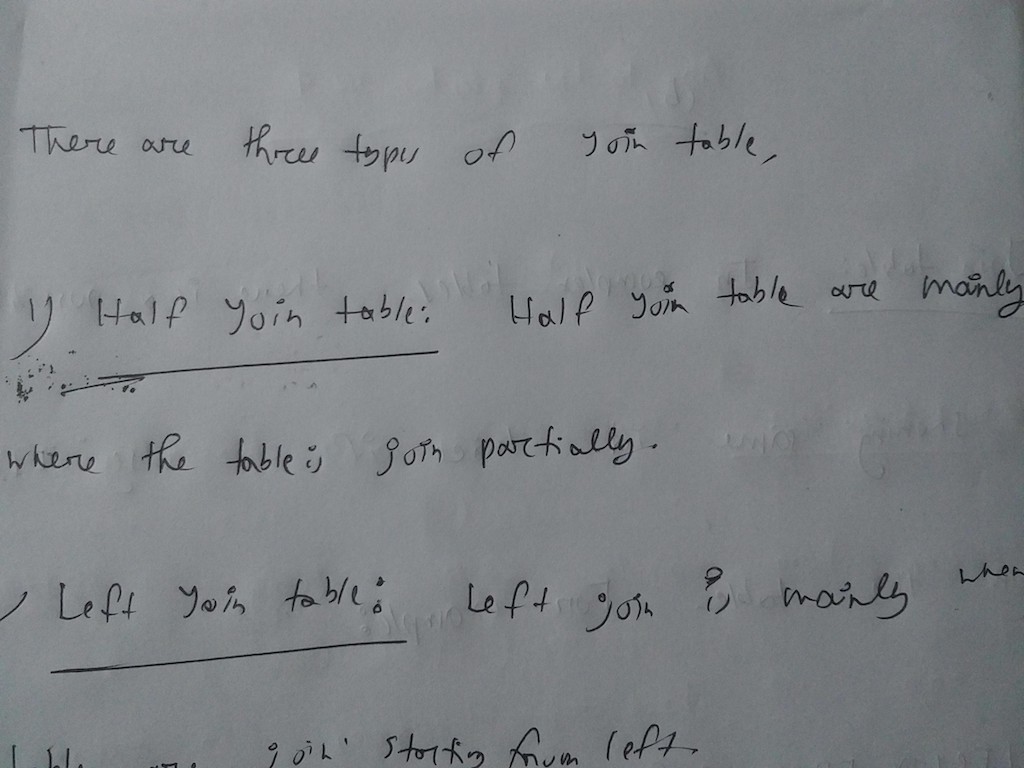 There are three types of Join table,
1) Half Join table: Half Join table are mainly
where the table is join partially.
Left Join table: Left join is mainly when
join starting from left